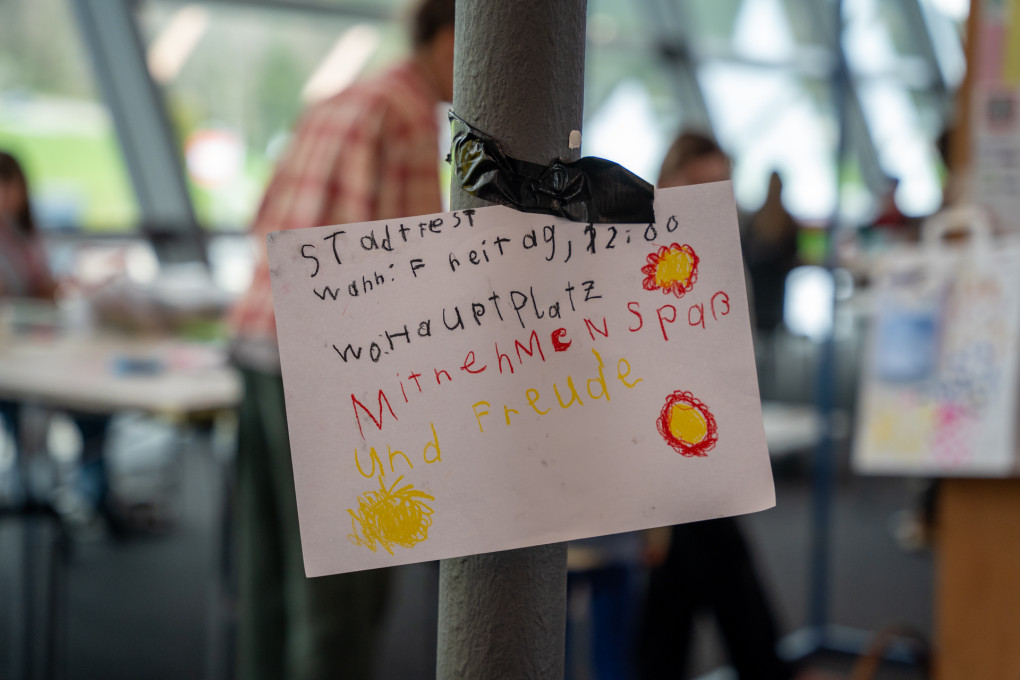 STadtfest
wann: Freitag, 12:00
wo: Hauptplatz
MitnehMeN Spaß
und Freude